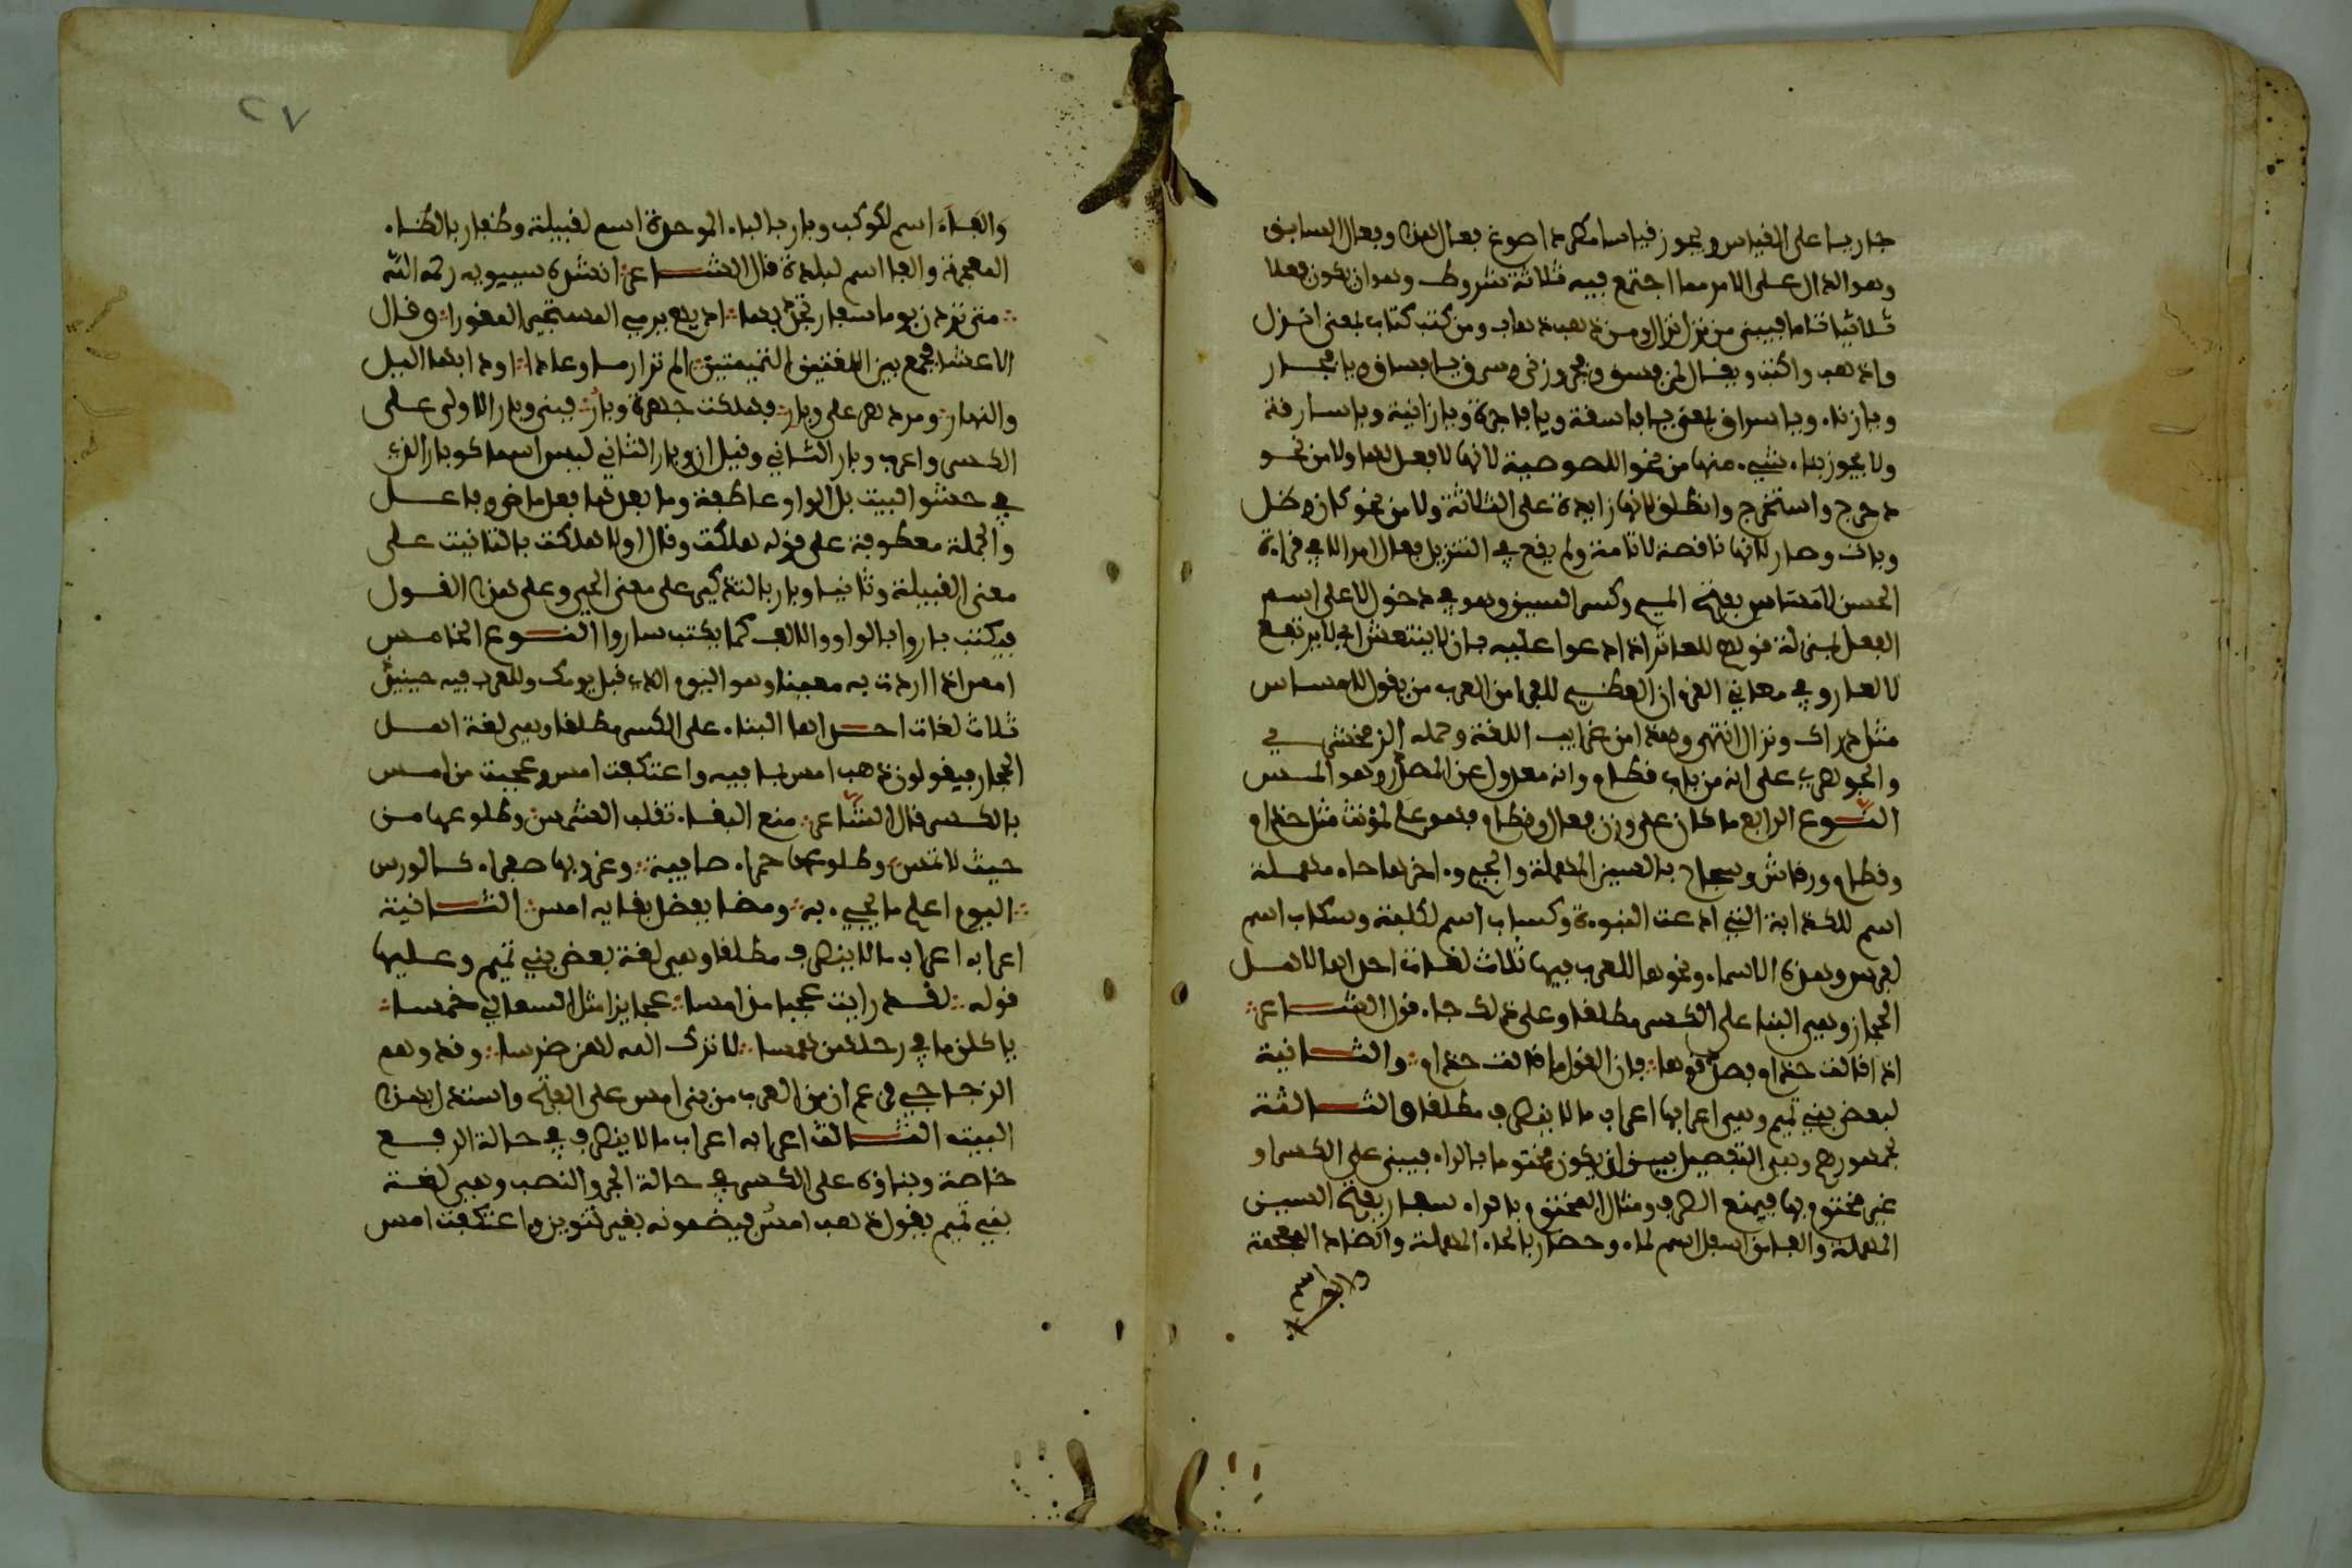 جاريا على القياس ويجوز قياسا مطردا صوغ فعال هذا وفعال السابق
وهو الدال على الامر مما اجتمع فيه ثلاثة شروط وهو ان يكون فعلا
ثلاثيا تاما فيبنى من نزل نزال ومن ذهب ذهاب ومن كتب كتاب بمعنى انزل
واذهب واكتب ويقال من فسق وفجر وزنى وسرق يا فساق ويا فجار
ويا زناء ويا سراق بمعنى يا فاسقة ويا فاجرة ويا زانية ويا سارقة
ولا يجوز بناء شيء منها من نحو اللصوصية لانها لا فعل لها ولا من نحو
دحرج واستخرج وانطلق لانها زايدة على الثلاثة ولا من نحو كان وظل
وبات وصار لانها ناقصة لا تامة ولم يقع في التنزيل فعال امرا الا في قراءة
الحسن لا مساس بفتح الميم وكسر السين وهو في دخول لا على اسم
الفعل بمنزلة قولهم للعاثر اذا دعوا عليه بان لا ينتعش اي لا يرتفع
لا لعا وفي معاني القرءان العظيم للفرا من العرب من يقول لا مساس
مثل دراك ونزال انتهى وهذا من غرايب اللغة وحمله الزمخشري
والجوهري على انه من باب قطام وانه معدول عن المصدر وهو المس
النوع الرابع ما كان على وزن فعال وهو علم لمؤنث مثل حذام
وقطام ورقاش وسجاح بالسين المهملة والجيم وءاخرها حاء مهملة
اسم للكذابة التي ادعت النبوءة وكساب اسم لكلبة وسكاب اسم
لفرس وهذه الاسماء ونحوها للعرب فيها ثلاث لغات احداها لاهل
الحجاز وهي البنا على الكسر مطلقا وعلى ذلك جاء قول الشاعر
اذا قالت حذام فصدقوها فان القول ما قالت حذام والثانية
لبعض بني تميم وهي اعرابها اعراب ما لا ينصرف مطلقا والثالثة
لجمهورهم وهي التفصيل بين ان يكون مختوما بالراء فيبنى على الكسر او
غير مختوم بها فيمنع الصرف ومثال المختوم بالراء سفار بفتح السين
المهملة والفا اسم لماء وحضار بالحاء المهملة والضاد المعجمة
والفاء اسم لكوكب وبار بالباء الموحدة اسم لقبيلة وظفار بالظاء
المعجمة والفا اسم لبلدة قال الشاعر انشده سيبويه رحمه الله
متى تردن يوما سفار تجد بها اديهم يرمي المستجيز المعورا وقال
الاعشى فجمع بين اللغتين التميميتين الم تروا ارما وعادا اودى بها الليل
والنهار ومر دهر على وبار فهلكت جهرة وبار فبنى وبار الاولى على
الكسر واعرب وبار الثاني وقيل ان وبار الثاني ليس اسما كوبار الذي
في حشو البيت بل الواو عاطفة وما بعدها فعل ماض وفاعل
والجملة معطوفة على قوله هلكت وقال اولا هلكت بالتانيث على
معنى القبيلة وثانيا وبار بالتذكير على معنى الحي وعلى هذا القول
فيكتب باروا بالواو والالف كما يكتب ساروا النوع الخامس
امس اذا اردت به معينا وهو اليوم الذي قبل يومك وللعرب فيه حينئذ
ثلاث لغات احداها البناء على الكسر مطلقا وهي لغة اهل
الحجاز فيقولون ذهب امس بما فيه واعتكفت امس وعجبت من امس
بالكسر قال الشاعر منع البقاء تقلب الشمس وطلوعها من
حيث لا تمس وطلوعها حمراء صافية وغروبها صفراء كالورس
اليوم اعلم ما يجيء به ومضا بفضل قضايه امس الثانية
اعرابه اعراب ما لا ينصرف مطلقا وهي لغة بعض بني تميم وعليها
قوله لقد رايت عجبا مذ امسا عجايزا مثل السعالي خمسا
ياكلن ما في رحلهن همسا لا ترك الله لهن ضرسا وقد وهم
الزجاجي فزعم ان من العرب من بنى امس على الفتح واستدل بهذا
البيت الثالث اعرابه اعراب ما لا ينصرف في حالة الرفع
خاصة وبناؤه على الكسر في حالة الجر والنصب وهي لغة
بني تميم يقول ذهب امس فيضمونه بغير تنوين واعتكفت امس
٢٧